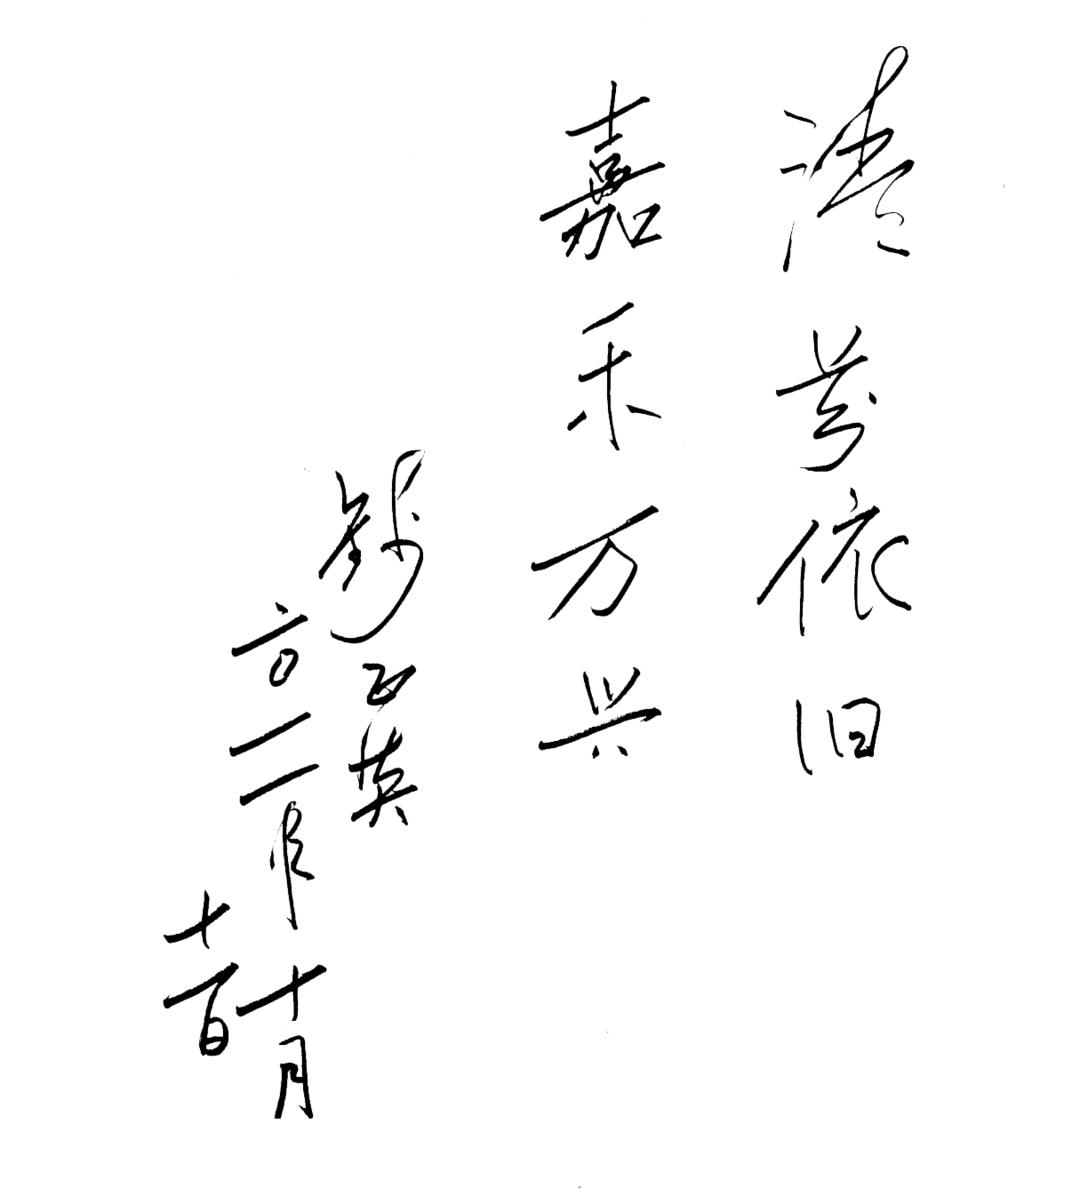 清芬依旧
嘉禾万兴
钱正英
二〇一一年十月
十一日